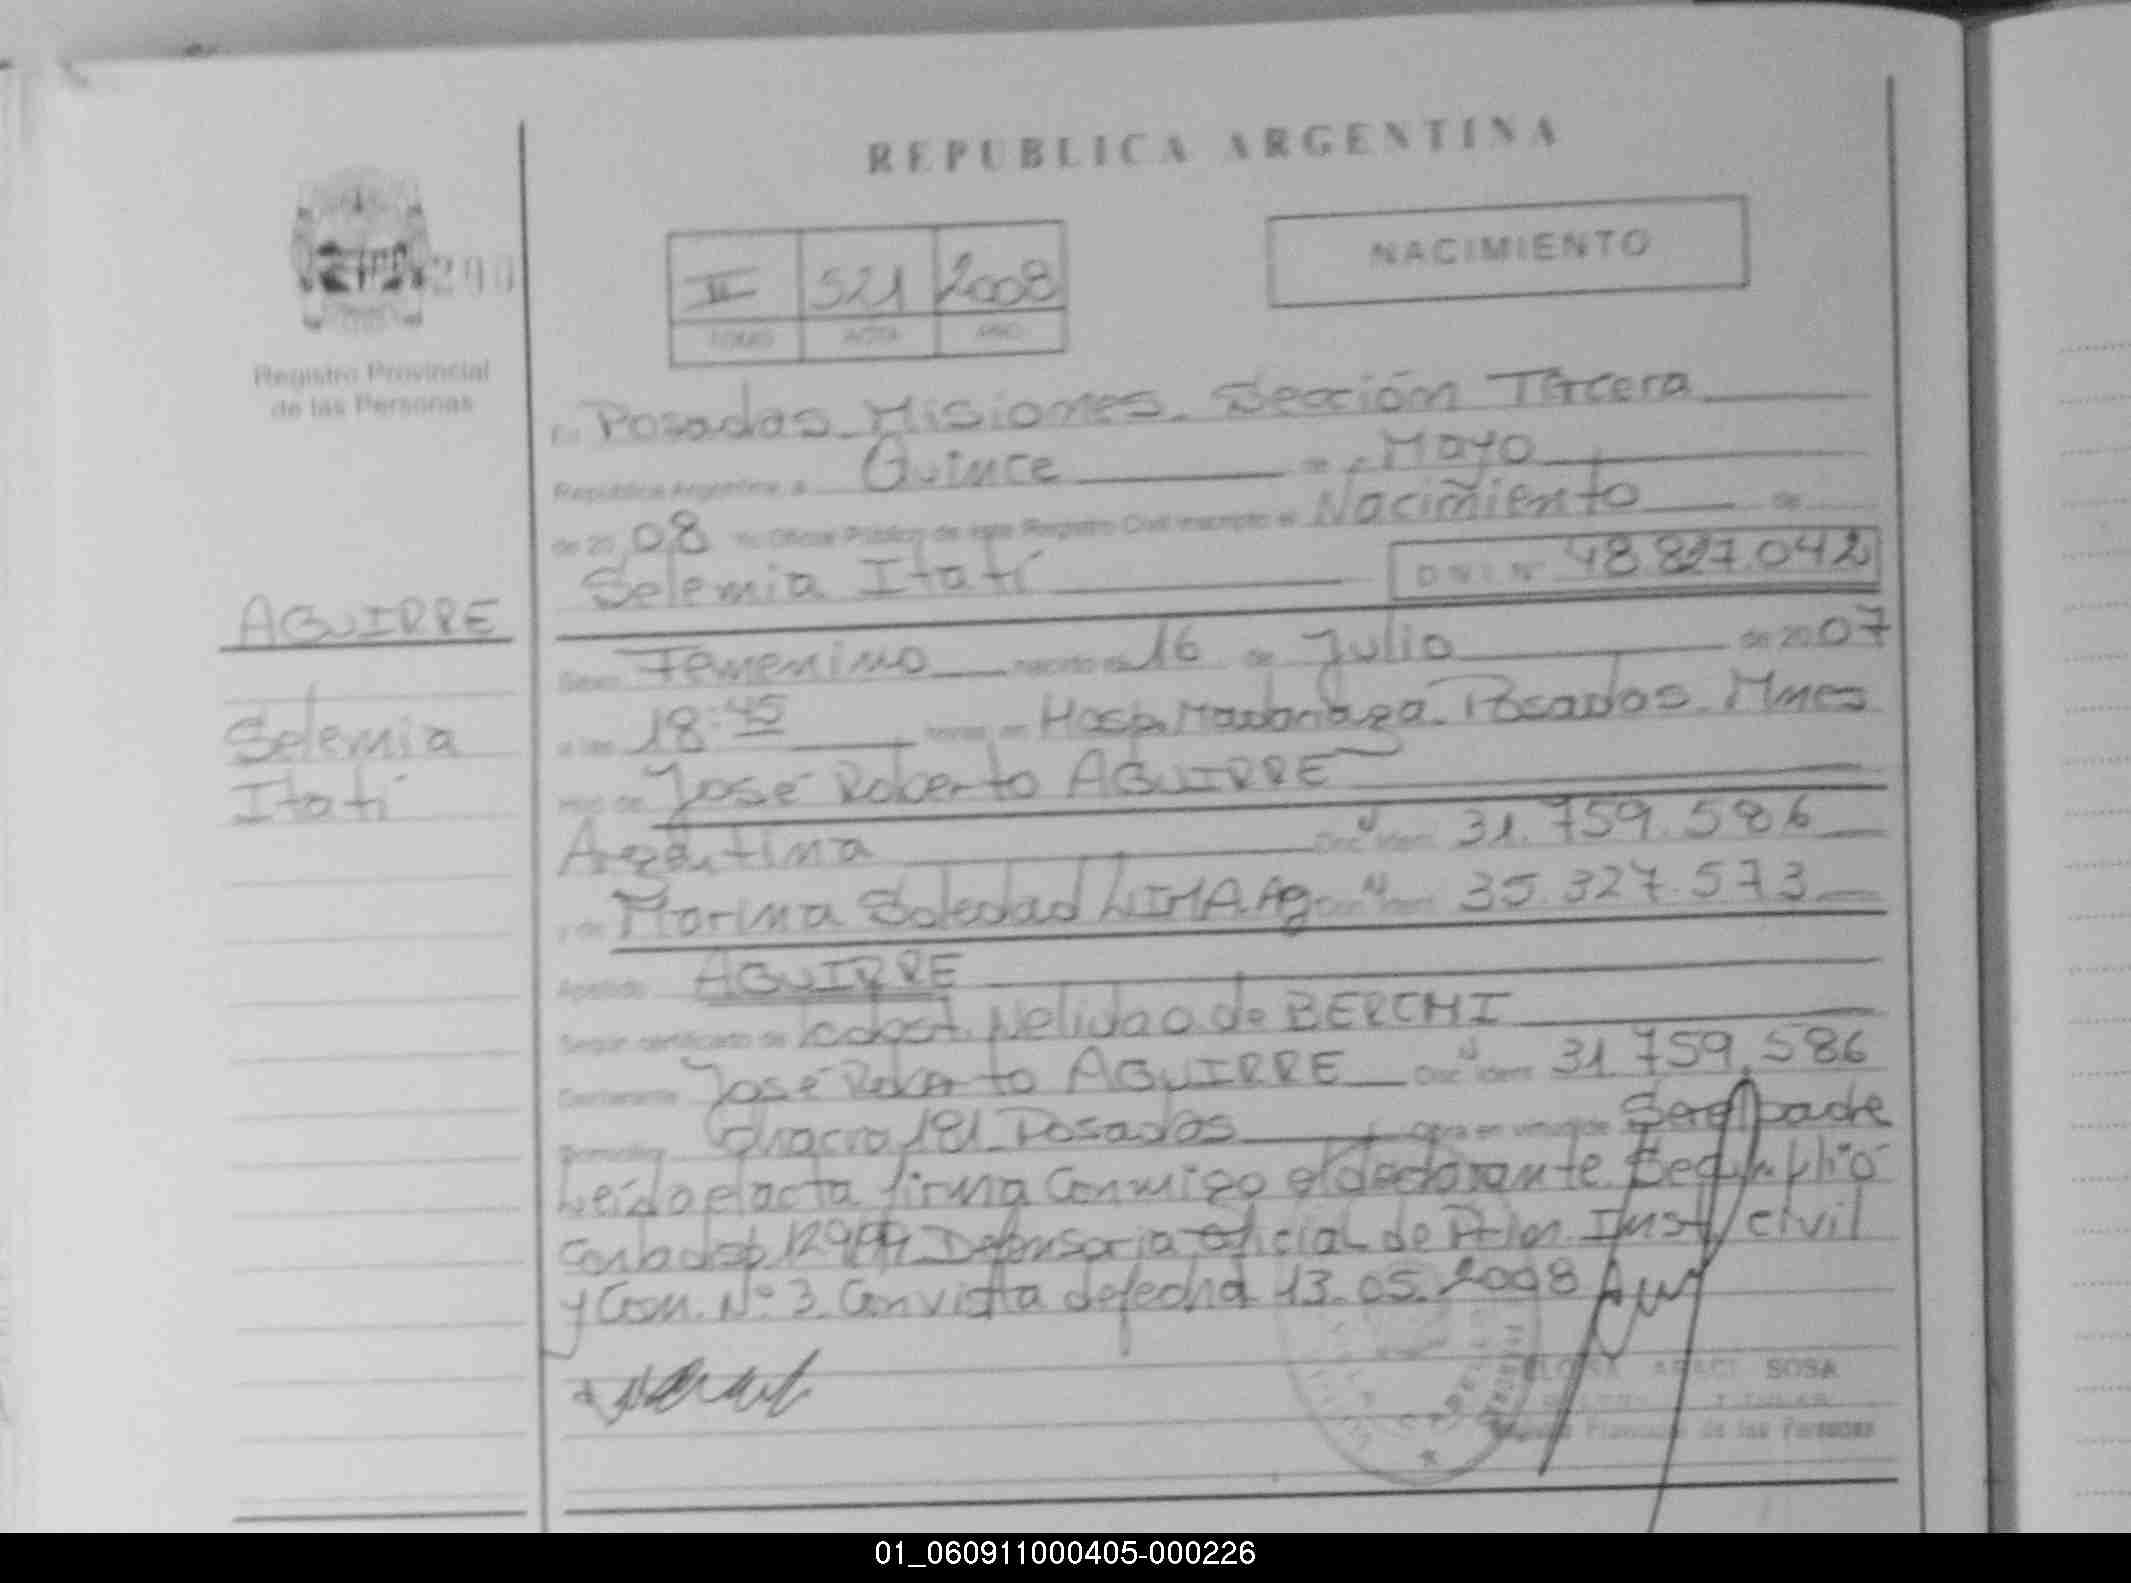 REPUBLICA ARGENTINA
NACIMIENTO
III 521 2008
TOMO ACTA AÑO
Registro Provincial
de las Personas
En Posadas Misiones. Sección Tercera
República Argentina, a Quince de Mayo
de 20 08 Yo Oficial Público de este Registro Civil inscripto el Nacimiento de
Selemia Itatí D N I Nº 48.827.042
AGUIRRE
Selemia
Itatí
Sexo Femenino nacido el 16 de Julio de 20 07
a las 18:45 horas en Hosp. Madariaga. Posadas. Mnes
Hijo de José Roberto AGUIRRE
Argentina Doc. Ident. 31.759.586
y de Marina Soledad LIMA. Ag Doc. Ident. 35.327.573
Apellido AGUIRRE
Según certificado de obst. Nelida de BERCHI
Declarante José Roberto AGUIRRE Doc. Ident. 31.759.586
Domicilio Chacra 181 Posadas Obra en virtud de Ser padre
Leído el acta firma Conmigo el declarante. Se cumplió
Defensoria Oficial de Inst. Civil
y Com. Nº 3. Con vista de fecha 13.05.2008
ARACI SOSA
TITULAR
Provincial de las Personas
01_060911000405-000226